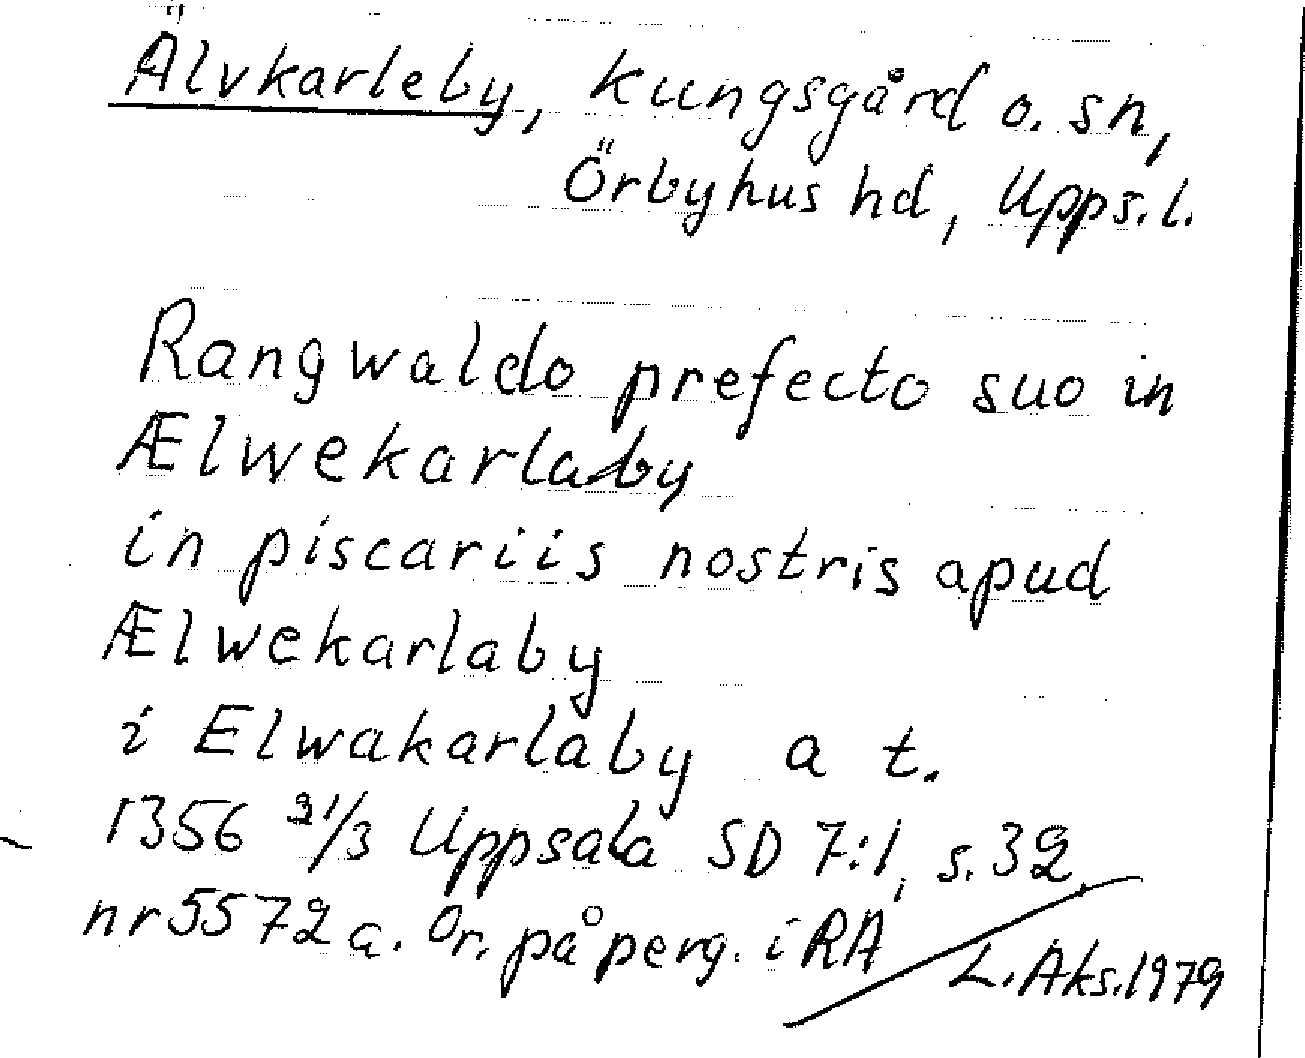 Älvkarleby, kungsgård o. sn,
Örbyhus hd, Upps. l.
Rangwaldo prefecto suo in
Ælwekarlaby
in piscariis nostris apud
Ælwekarlaby
i Elwakarlaby a t.
1356 21/3 Uppsala SD 7:1, s. 32,
nr 5572 a. Or. på perg. i RA
L. Aks. 1979